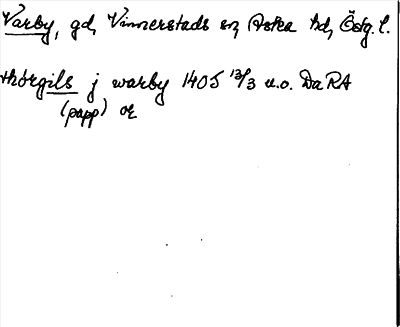 Varby, gd, Vinnerstads sn, Aska hd, Östg. l.
thorgils j warby 1405 13/3 u.o. DaRA
(papp) or